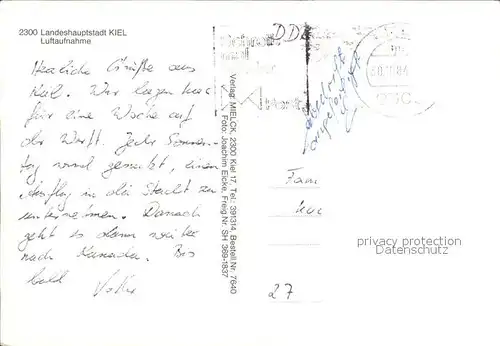 2300 Landeshauptstadt KIEL
Luftaufnahme
Herzliche Grüße aus
Kiel. Wir liegen hier
für eine Woche auf
der Werft. Jeder Sonnen-
tag wird genutzt, einen
Ausflug in die Stadt zu
unternehmen. Danach
geht es dann weiter
nach Kanada. Bis
bald
Verlag: MIELCK, 2300 Kiel 17, Tel.: 391314, Bestell.Nr. 7640
Foto: Joachim Elcke, Freig.Nr. SH 389-1837
DDR
Fam
27
privacy protection
Datenschutz